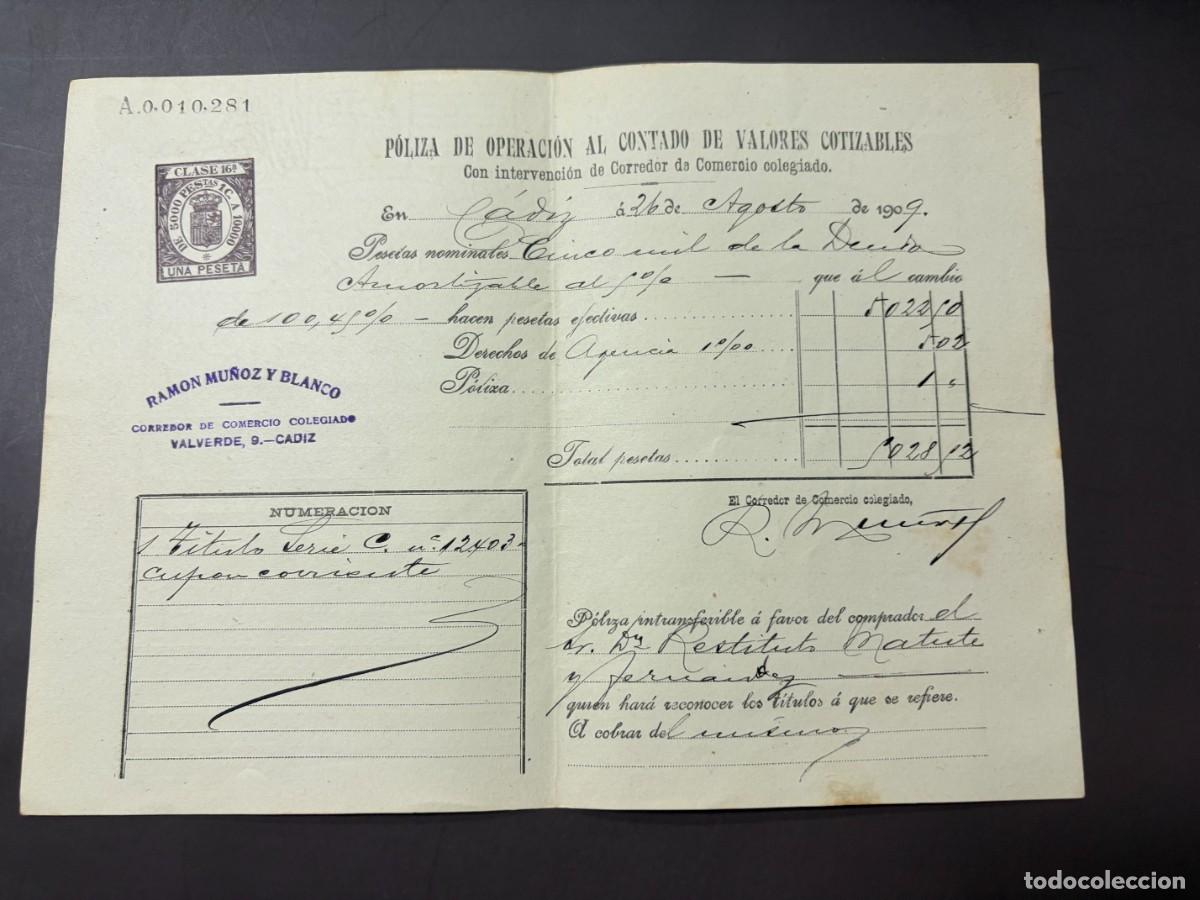 A.0.010.281
PÓLIZA DE OPERACIÓN AL CONTADO DE VALORES COTIZABLES
Con intervención de Corredor de Comercio colegiado.
CLASE 16ª
DE 5000 PESTAS 1 C. A 10000
UNA PESETA
En Cádiz á 26 de Agosto de 1909.
Pesetas nominales Cinco mil de la Deuda
Amortizable al 5% — que ál cambio
de 100,45% - hacen pesetas efectivas 5022 50
Derechos de Agencia 1 0/00 5 02
Póliza 1 "
Total pesetas 5028 52
RAMON MUÑOZ Y BLANCO
CORREDOR DE COMERCIO COLEGIADO
VALVERDE, 9.—CADIZ
El Corredor de Comercio colegiado,
R. Muñoz
NUMERACION
1 Título Serie C. nº 12403-
cupon corriente
Póliza intransferible á favor del comprador el
Sr. Dn Restituto Matute
y Fernandez
quien hará reconocer los títulos á que se refiere.
A cobrar del mismo
todocoleccion